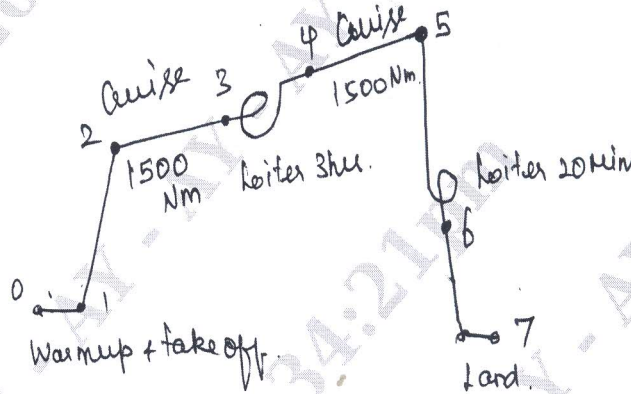 4 Cruise 5
Cruise 3
2
1500 Nm.
1500
Nm
Loiter 3hrs.
Loiter 20Min
6
0
1
7
Warmup + take off.
Land.
AY - AY
34:21pm